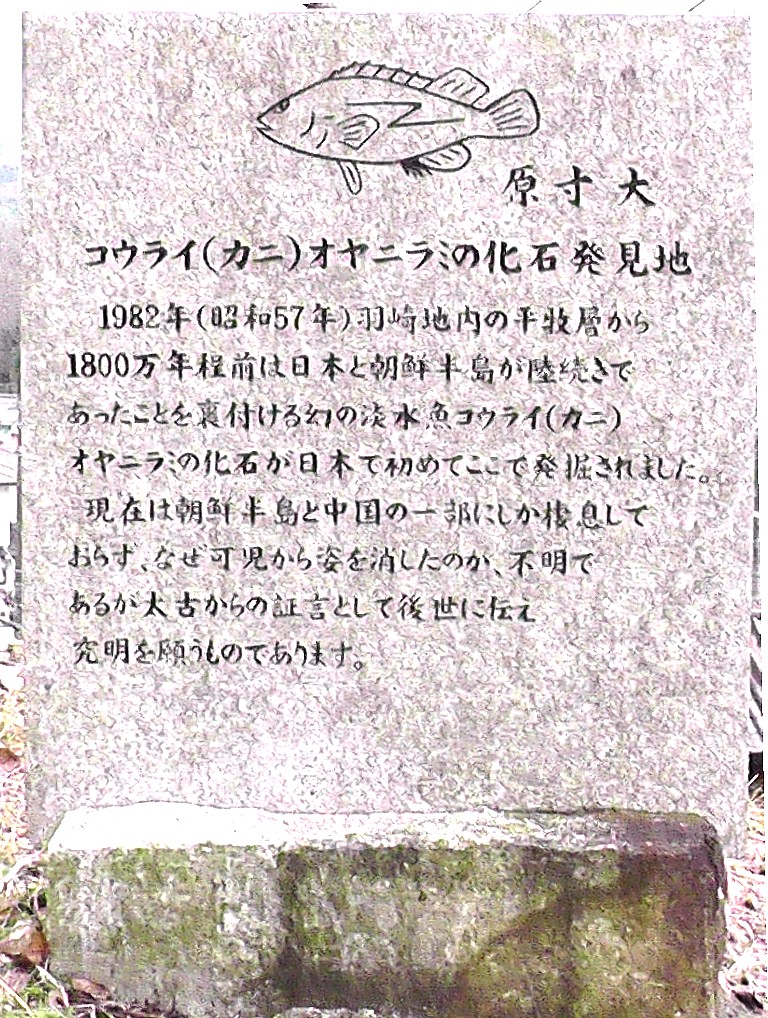 原寸大
コウライ(カニ)オヤニラミの化石発見地
1982年(昭和57年)羽崎地内の平牧層から
1800万年程前は日本と朝鮮半島が陸続きで
あったことを裏付ける幻の淡水魚コウライ(カニ)
オヤニラミの化石が日本で初めてここで発掘されました。
現在は朝鮮半島と中国の一部にしか棲息して
おらず、なぜ可児から姿を消したのか、不明で
あるが太古からの証言として後世に伝え
究明を願うものであります。